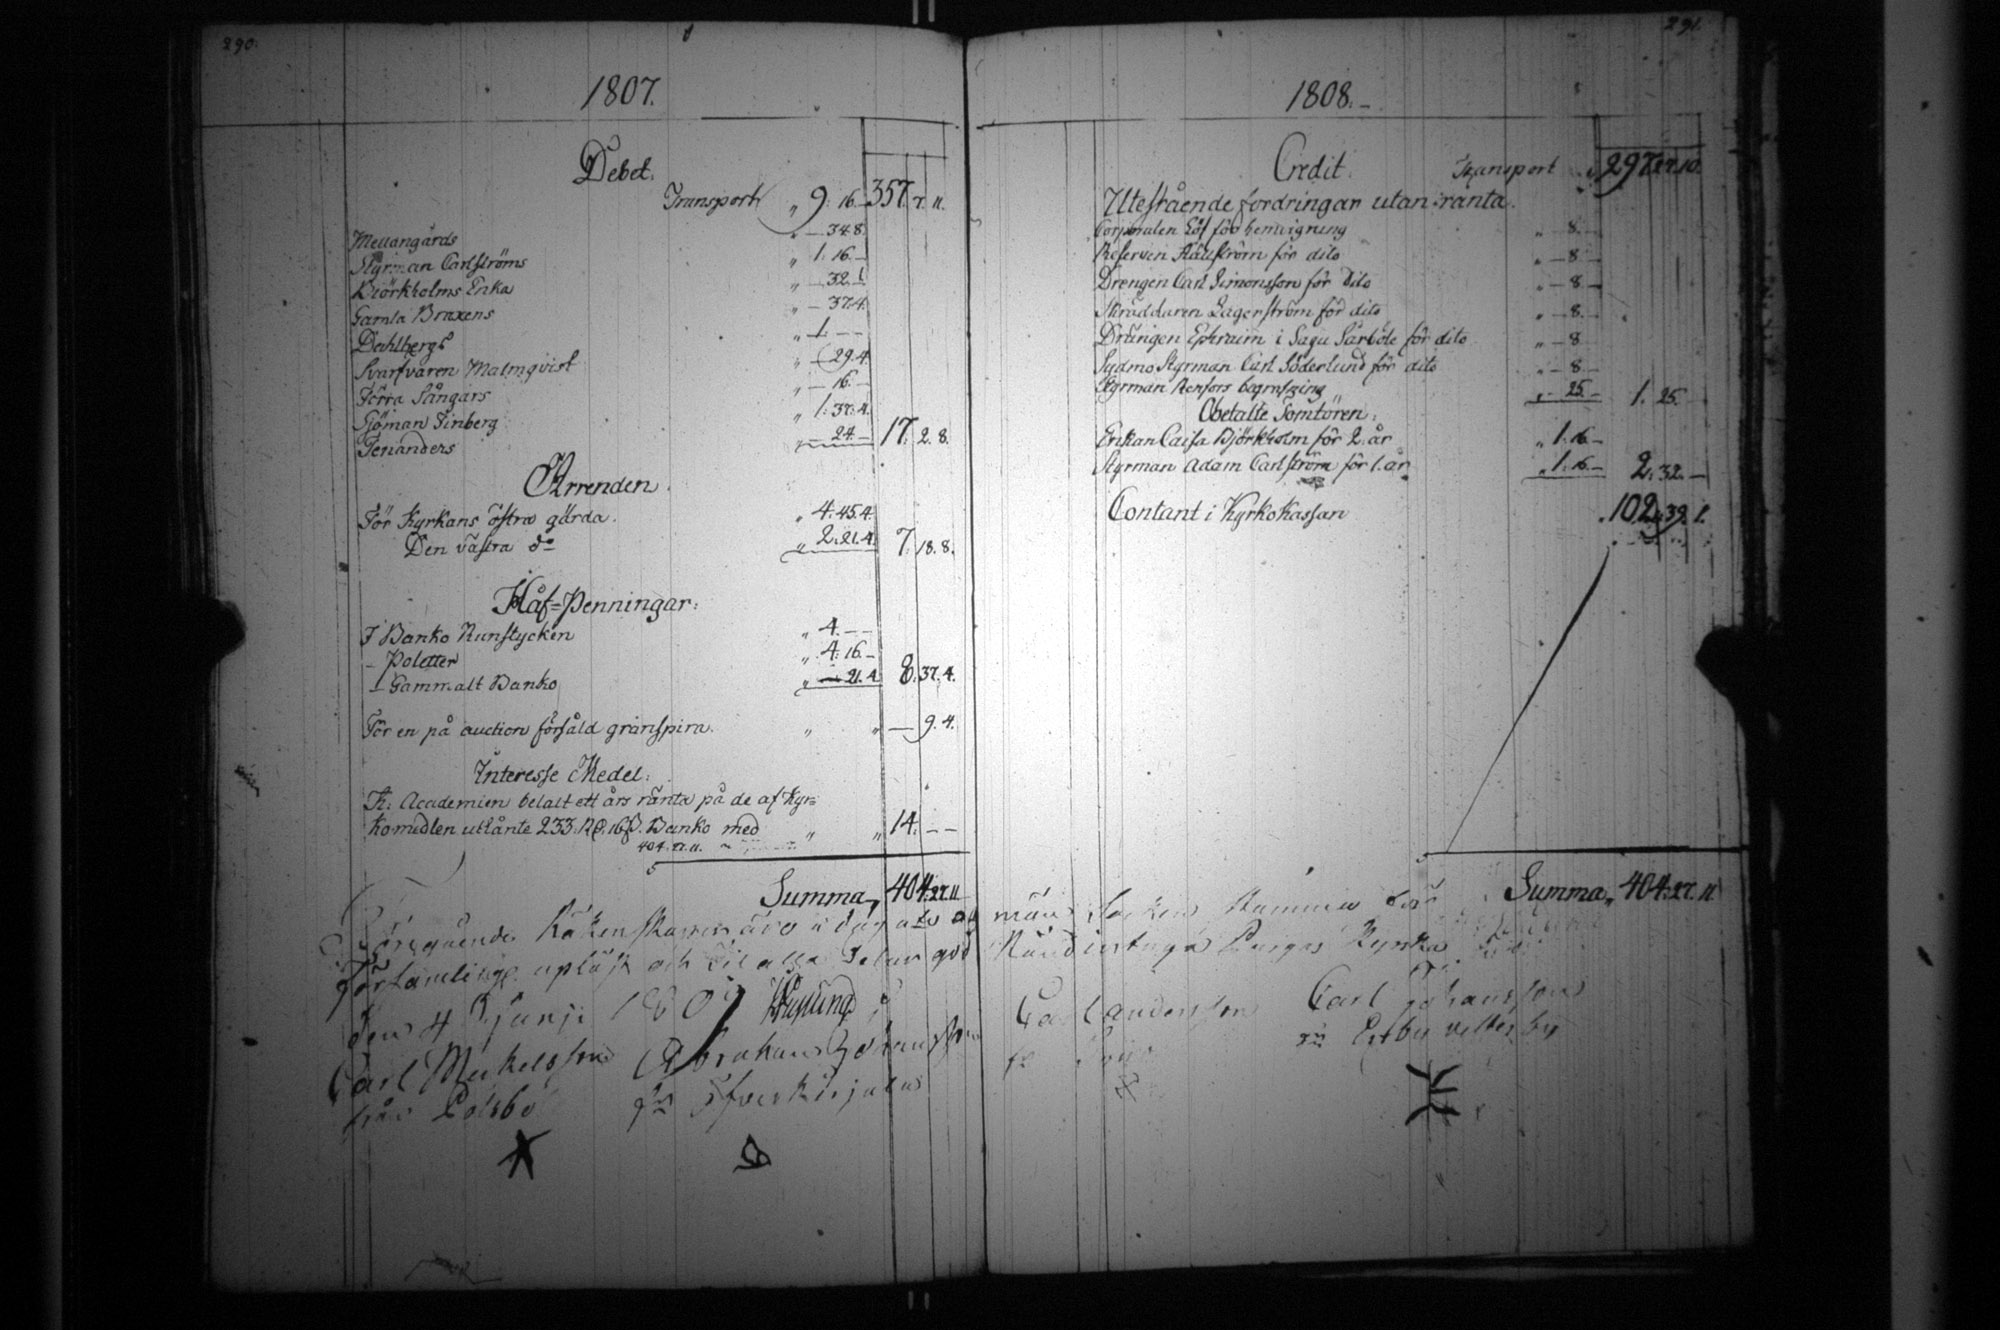 290.
1807.
Debet.
Transport „ 9. 16. 357. 7. 11.
Mellangårds „ — 34. 8.
Styrman Carlströms „ 1. 16. —
Björkholms Enka „ — 32.
Gamla Braxens „ — 37. 4.
Dahlbergs „ 1. — —
Svarfvaren Malmqvist „ — 29. 4.
Förra Sångars „ — 16. —
Sjöman Finberg „ 1: 37: 4.
Fenanders „ — 24. — 17. 2. 8.
Arrenden.
För Kyrkans östra gärda. „ 4. 45. 4.
Den västra do „ 2. 21. 4. 7. 18. 8.
Håf-Penningar:
I Banko Runstycken „ 4. — —
— Poletter „ 4. 16. —
— Gammalt Banko „ — 21. 4. 8. 37. 4.
För en på auction försåld granspira. „ „ — 9. 4.
Interesse Medel.
K. Academien betalt ett års ränta på de af Kyr=
komedlen utlånte 233. Rd. 16 s. Banko med „ „ 14. — —
404. 27. 11.
Summa, 404. 27. 11.
Föregående Räkenskaper äro i dag
församling upläst och til alla delar god
den 4 Junji 1809
Carl Mickelsson Abraham Johansson
från
291.
1808. —
Credit. Transport „ 297. 27. 10.
Utestående fordringar utan ränta.
Corporalen Löf för hemvigning „ — 8. —
Reserven Hällström för dito „ — 8. —
Drengen Carl Simonsson för Dito „ — 8. —
Skräddaren Lagerström för dito „ — 8. —
Drängen Ephraim i Sagu Särböle för dito „ — 8
Sydmo Styrman Carl Söderlund för dito „ — 8 —
Styrman Renfors begrafning „ — 25. — 1. 25.
Obetalte Somtören:
Enkan Caisa Björkholm för 2. år „ 1. 16. —
Styrman Adam Carlström för 1. år „ 1. 16. — 2. 32. —
Contant i Kyrkokassan „ 102. 39. 1.
Summa, 404. 27. 11.
Sockenstämma
Pargas Kyrka
Carl Andersson Carl Johansson